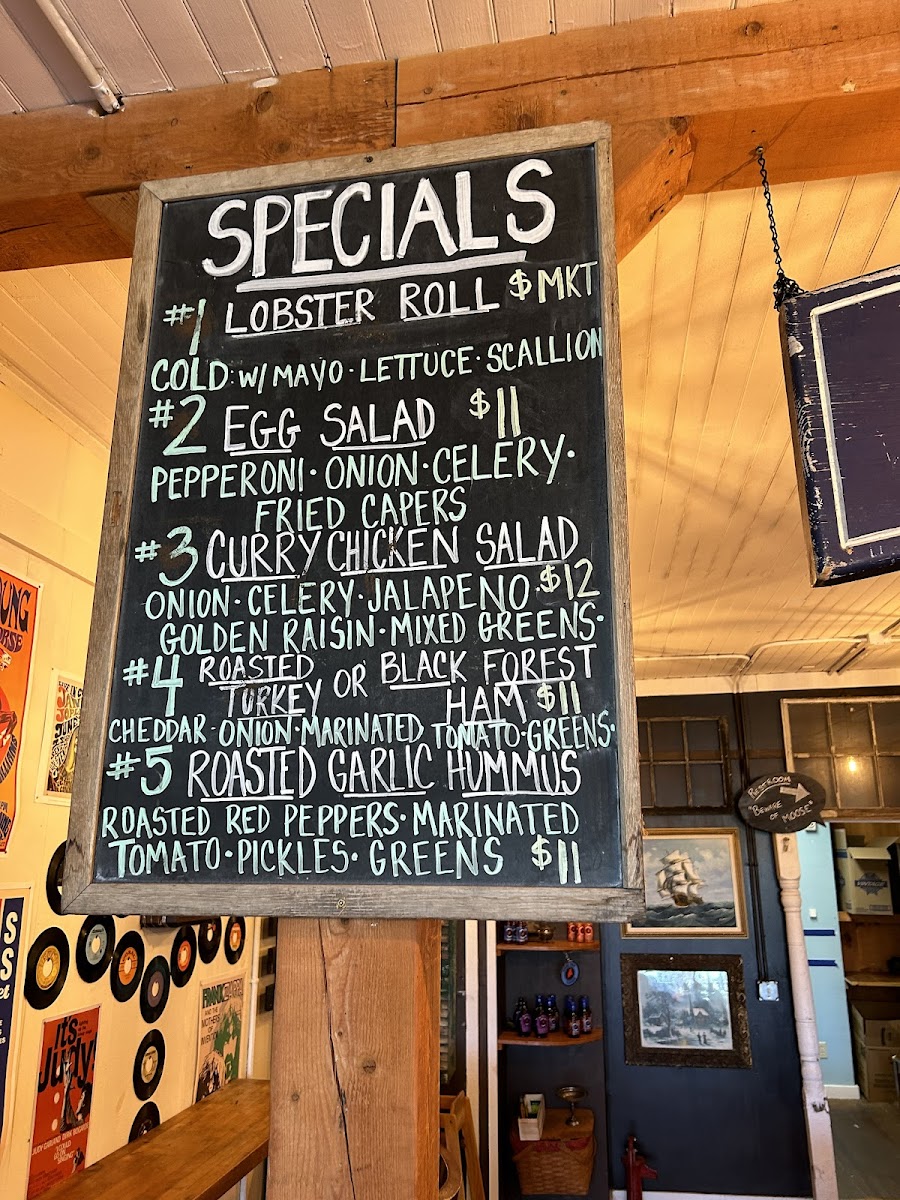 SPECIALS
#1 LOBSTER ROLL $MKT
COLD W/ MAYO · LETTUCE · SCALLION
#2 EGG SALAD $11
PEPPERONI · ONION · CELERY ·
FRIED CAPERS
#3 CURRY CHICKEN SALAD
ONION · CELERY · JALAPENO $12
GOLDEN RAISIN · MIXED GREENS ·
#4 ROASTED OR BLACK FOREST
TURKEY HAM $11
CHEDDAR · ONION · MARINATED TOMATO · GREENS ·
#5 ROASTED GARLIC HUMMUS
ROASTED RED PEPPERS · MARINATED
TOMATO · PICKLES · GREENS $11
RESTROOM
"BEWARE
OF MOOSE"
OUNG
ORSE
IT'S
Judy
JUDY GARLAND
FRANK
AND THE
MOTHERS